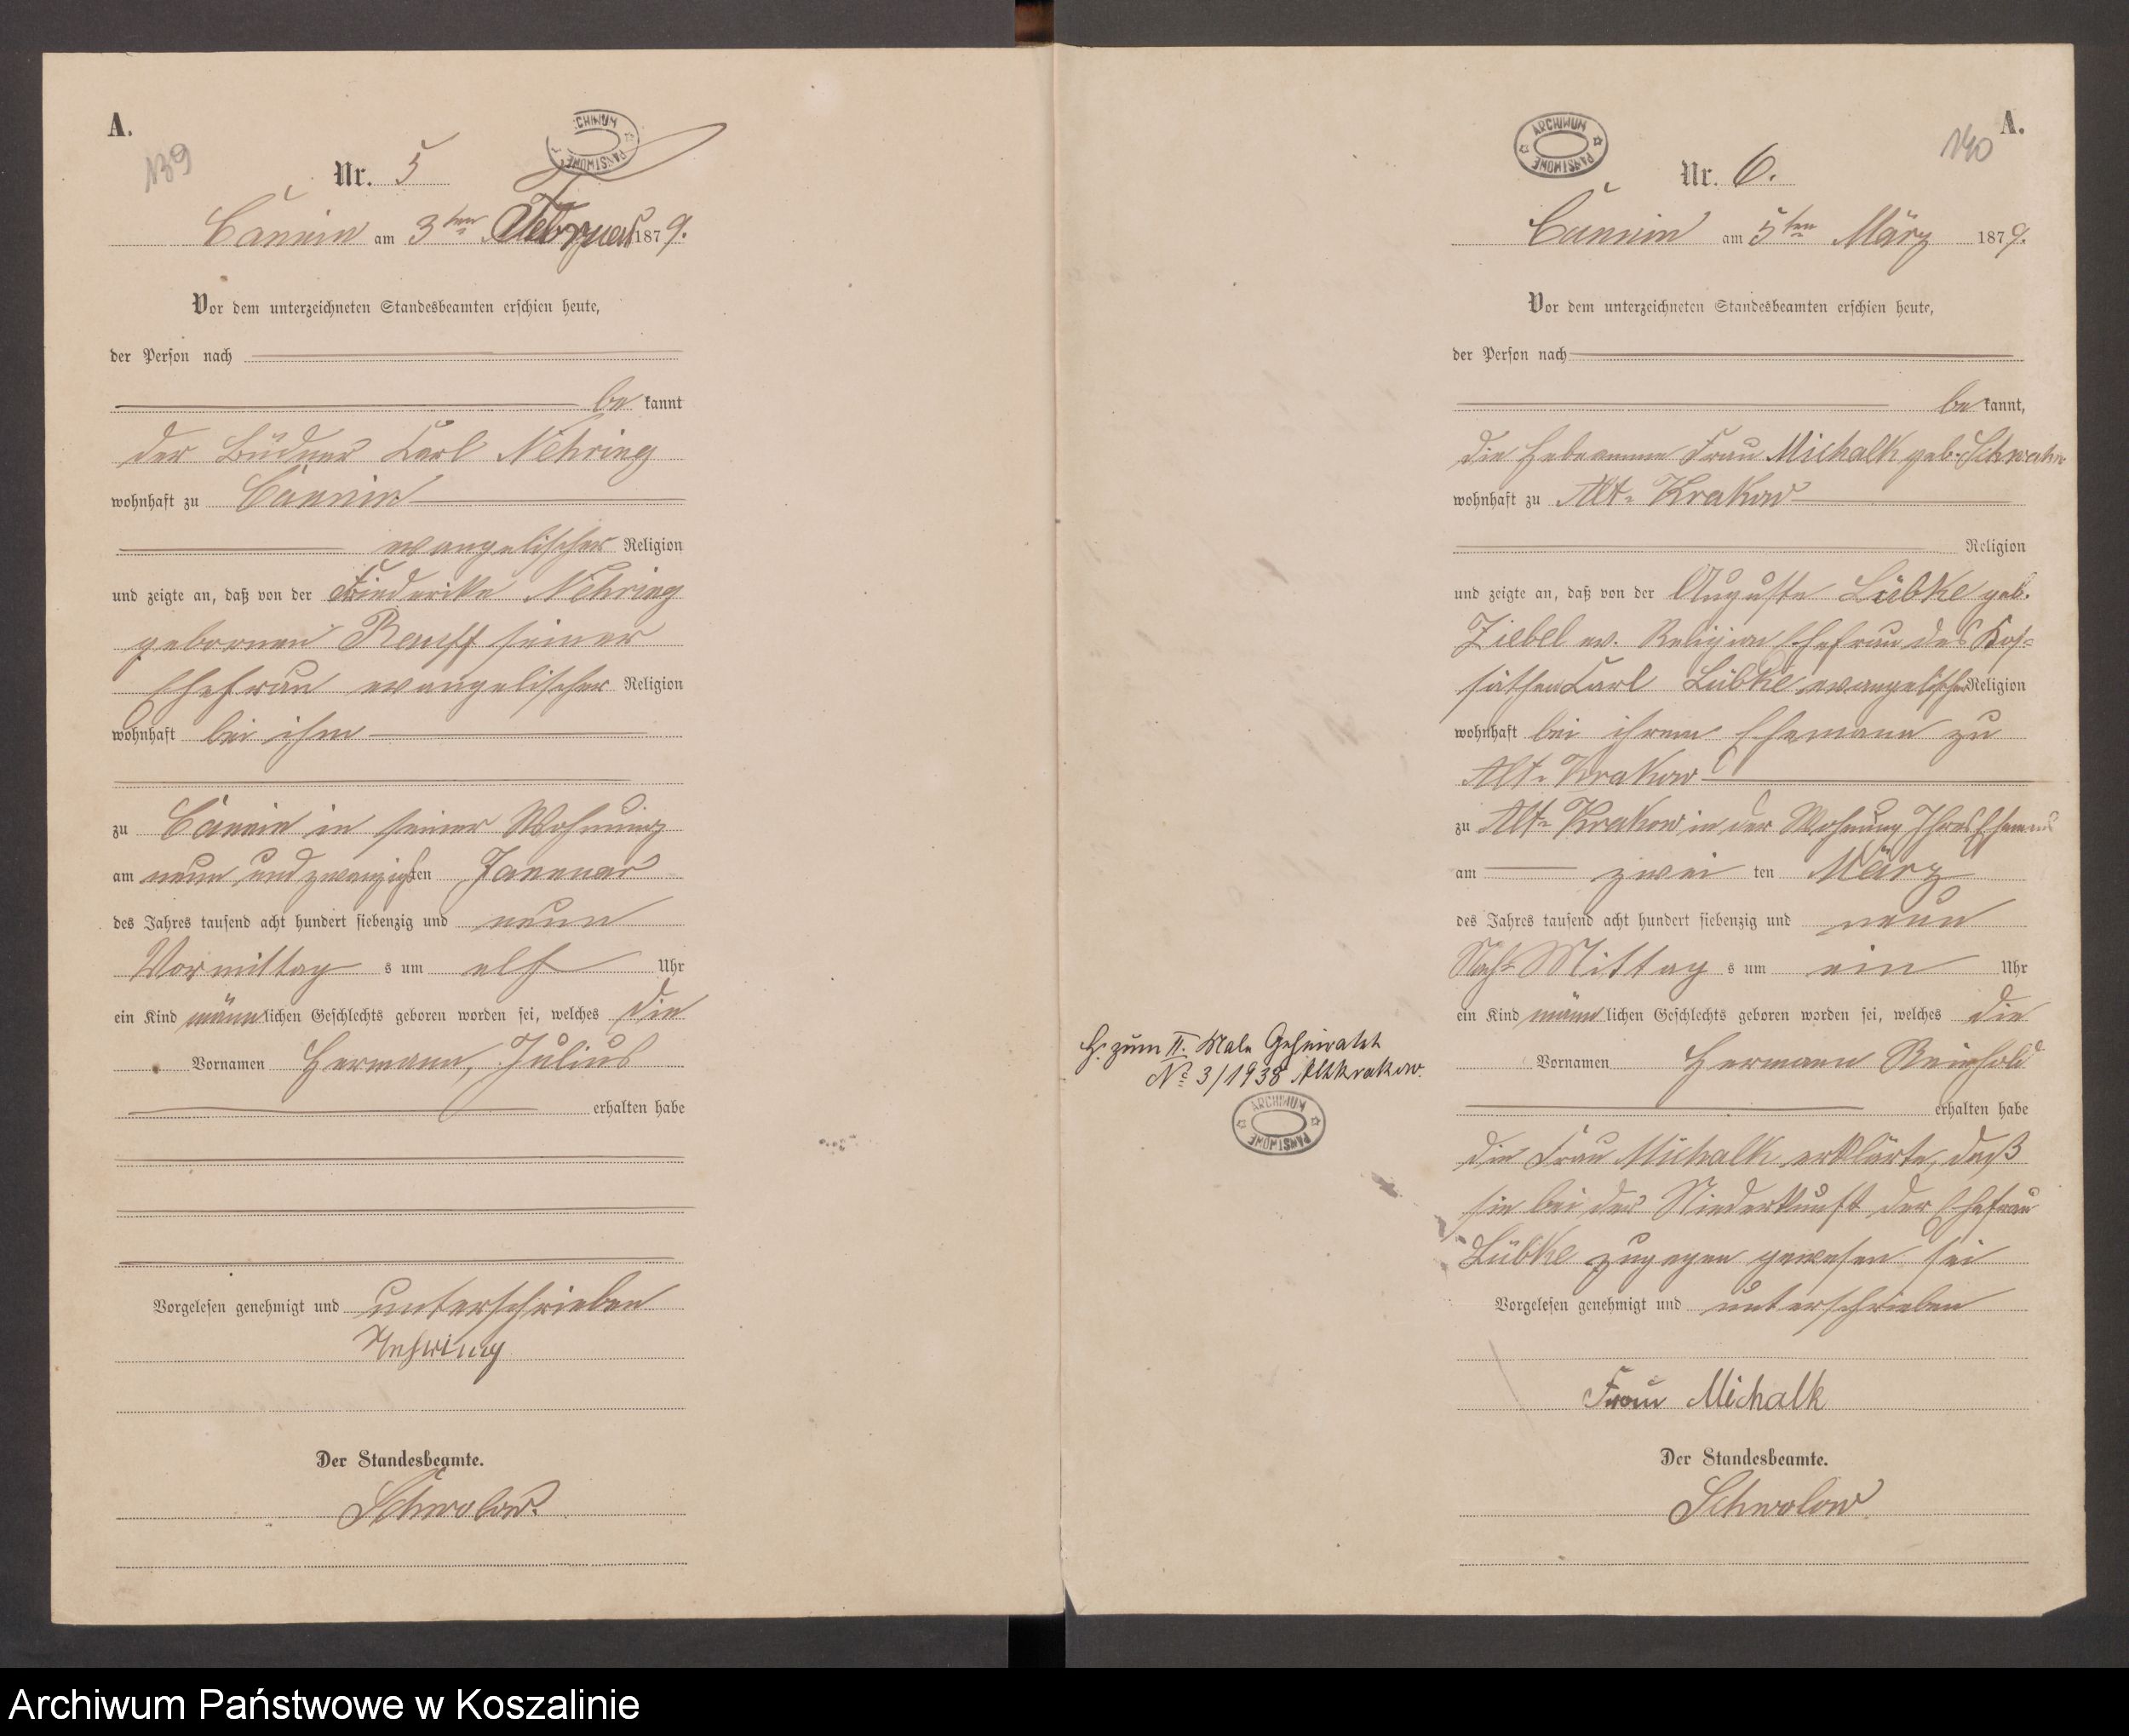 A.
139
Nr. 5
ARCHIWUM PAŃSTWOWE
Cannin am 3ten Februar 1879.
Vor dem unterzeichneten Standesbeamten erschien heute,
der Person nach
be kannt
der Büdner Carl Nehring
wohnhaft zu Cannin
evangelischer Religion
und zeigte an, daß von der Friederike Nehring
gebornen seiner
Ehefrau evangelischer Religion
wohnhaft bei ihm
zu Cannin in seiner Wohnung
am neun und zwanzigsten Januar
des Jahres tausend acht hundert siebenzig und neun
Vormittag s um elf Uhr
ein Kind männlichen Geschlechts geboren worden sei, welches die
Vornamen Hermann, Julius
erhalten habe
Vorgelesen genehmigt und unterschrieben
Nehring
Der Standesbeamte.
Schwolow.
H. zum II. Male Geheiratet
No 3/1938 Altkrakow.
ARCHIWUM PAŃSTWOWE
ARCHIWUM PAŃSTWOWE
140
A.
Nr. 6.
Cannin am 5ten März 1879.
Vor dem unterzeichneten Standesbeamten erschien heute,
der Person nach
be kannt,
die Hebeamme Frau Michalk geb.
wohnhaft zu Alt-Krakow
Religion
und zeigte an, daß von der Auguste Lübke geb.
Ziebel ev. Religion Ehefrau des Kos-
säthen Carl Lübke evangelischer Religion
wohnhaft bei ihrem Ehemann zu
Alt-Krakow
zu Alt-Krakow in der Wohnung Ihres Ehemanns
am zwei ten März
des Jahres tausend acht hundert siebenzig und neun
Nach-Mittag s um ein Uhr
ein Kind männlichen Geschlechts geboren worden sei, welches die
Vornamen Hermann Reinhold
erhalten habe
die Frau Michalk erklärte, daß
sie bei der Niederkunft der Ehefrau
Lübke zugegen gewesen sei
Vorgelesen genehmigt und unterschrieben
Frau Michalk
Der Standesbeamte.
Schwolow
Archiwum Państwowe w Koszalinie